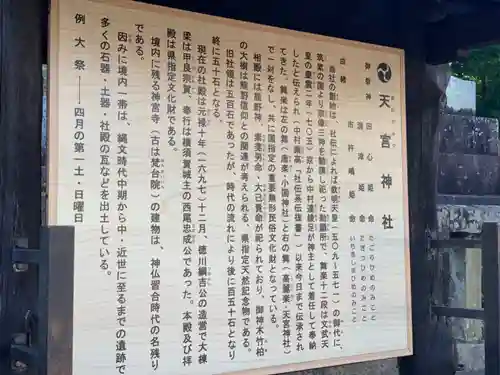 天宮神社
御祭神 田心姫命 たごりひめのみこと
湍津姫命 たぎつひめのみこと
市杵嶋姫命 いちきしまひめのみこと
由緒
当社の創祀は、社伝によれば欽明天皇(五〇九~五七一)の御代に、
筑紫の国より宗像三神を勧請し祀った勅願所で、舞楽十二段は文武天
皇の慶雲二年(七〇五)京から中村連綾足が神主として着任して奉納
したと伝えられ(中村乗高「社伝系伝復書」)以来今日まで伝承され
てきた。舞楽は左の舞(唐楽・小国神社)と右の舞(高麗楽・天宮神社)
で一対をなし、共に国指定の重要無形民俗文化財となっている。
相殿には龍野神、素戔男命・大己貴命が祀られており、御神木竹柏
の大樹は熊野信仰との関連が考えられる、県指定天然記念物である。
旧社領は五百石であったが、時代の流れにより後に百五十石となり
終に五十石となる。
現在の社殿は元禄十年(一六九七)十二月、徳川綱吉公の造営で大棟
梁は甲良宗賀、奉行は横須賀城主の西尾忠成公であった。本殿及び拝
殿は県指定文化財である。
境内に残る神宮寺(古は梵台院)の建物は、神仏習合時代の名残り
である。
因みに境内一帯は、縄文時代中期から中・近世に至るまでの遺跡で
多くの石器・土器・社殿の瓦などを出土している。
例大祭――四月の第一土・日曜日